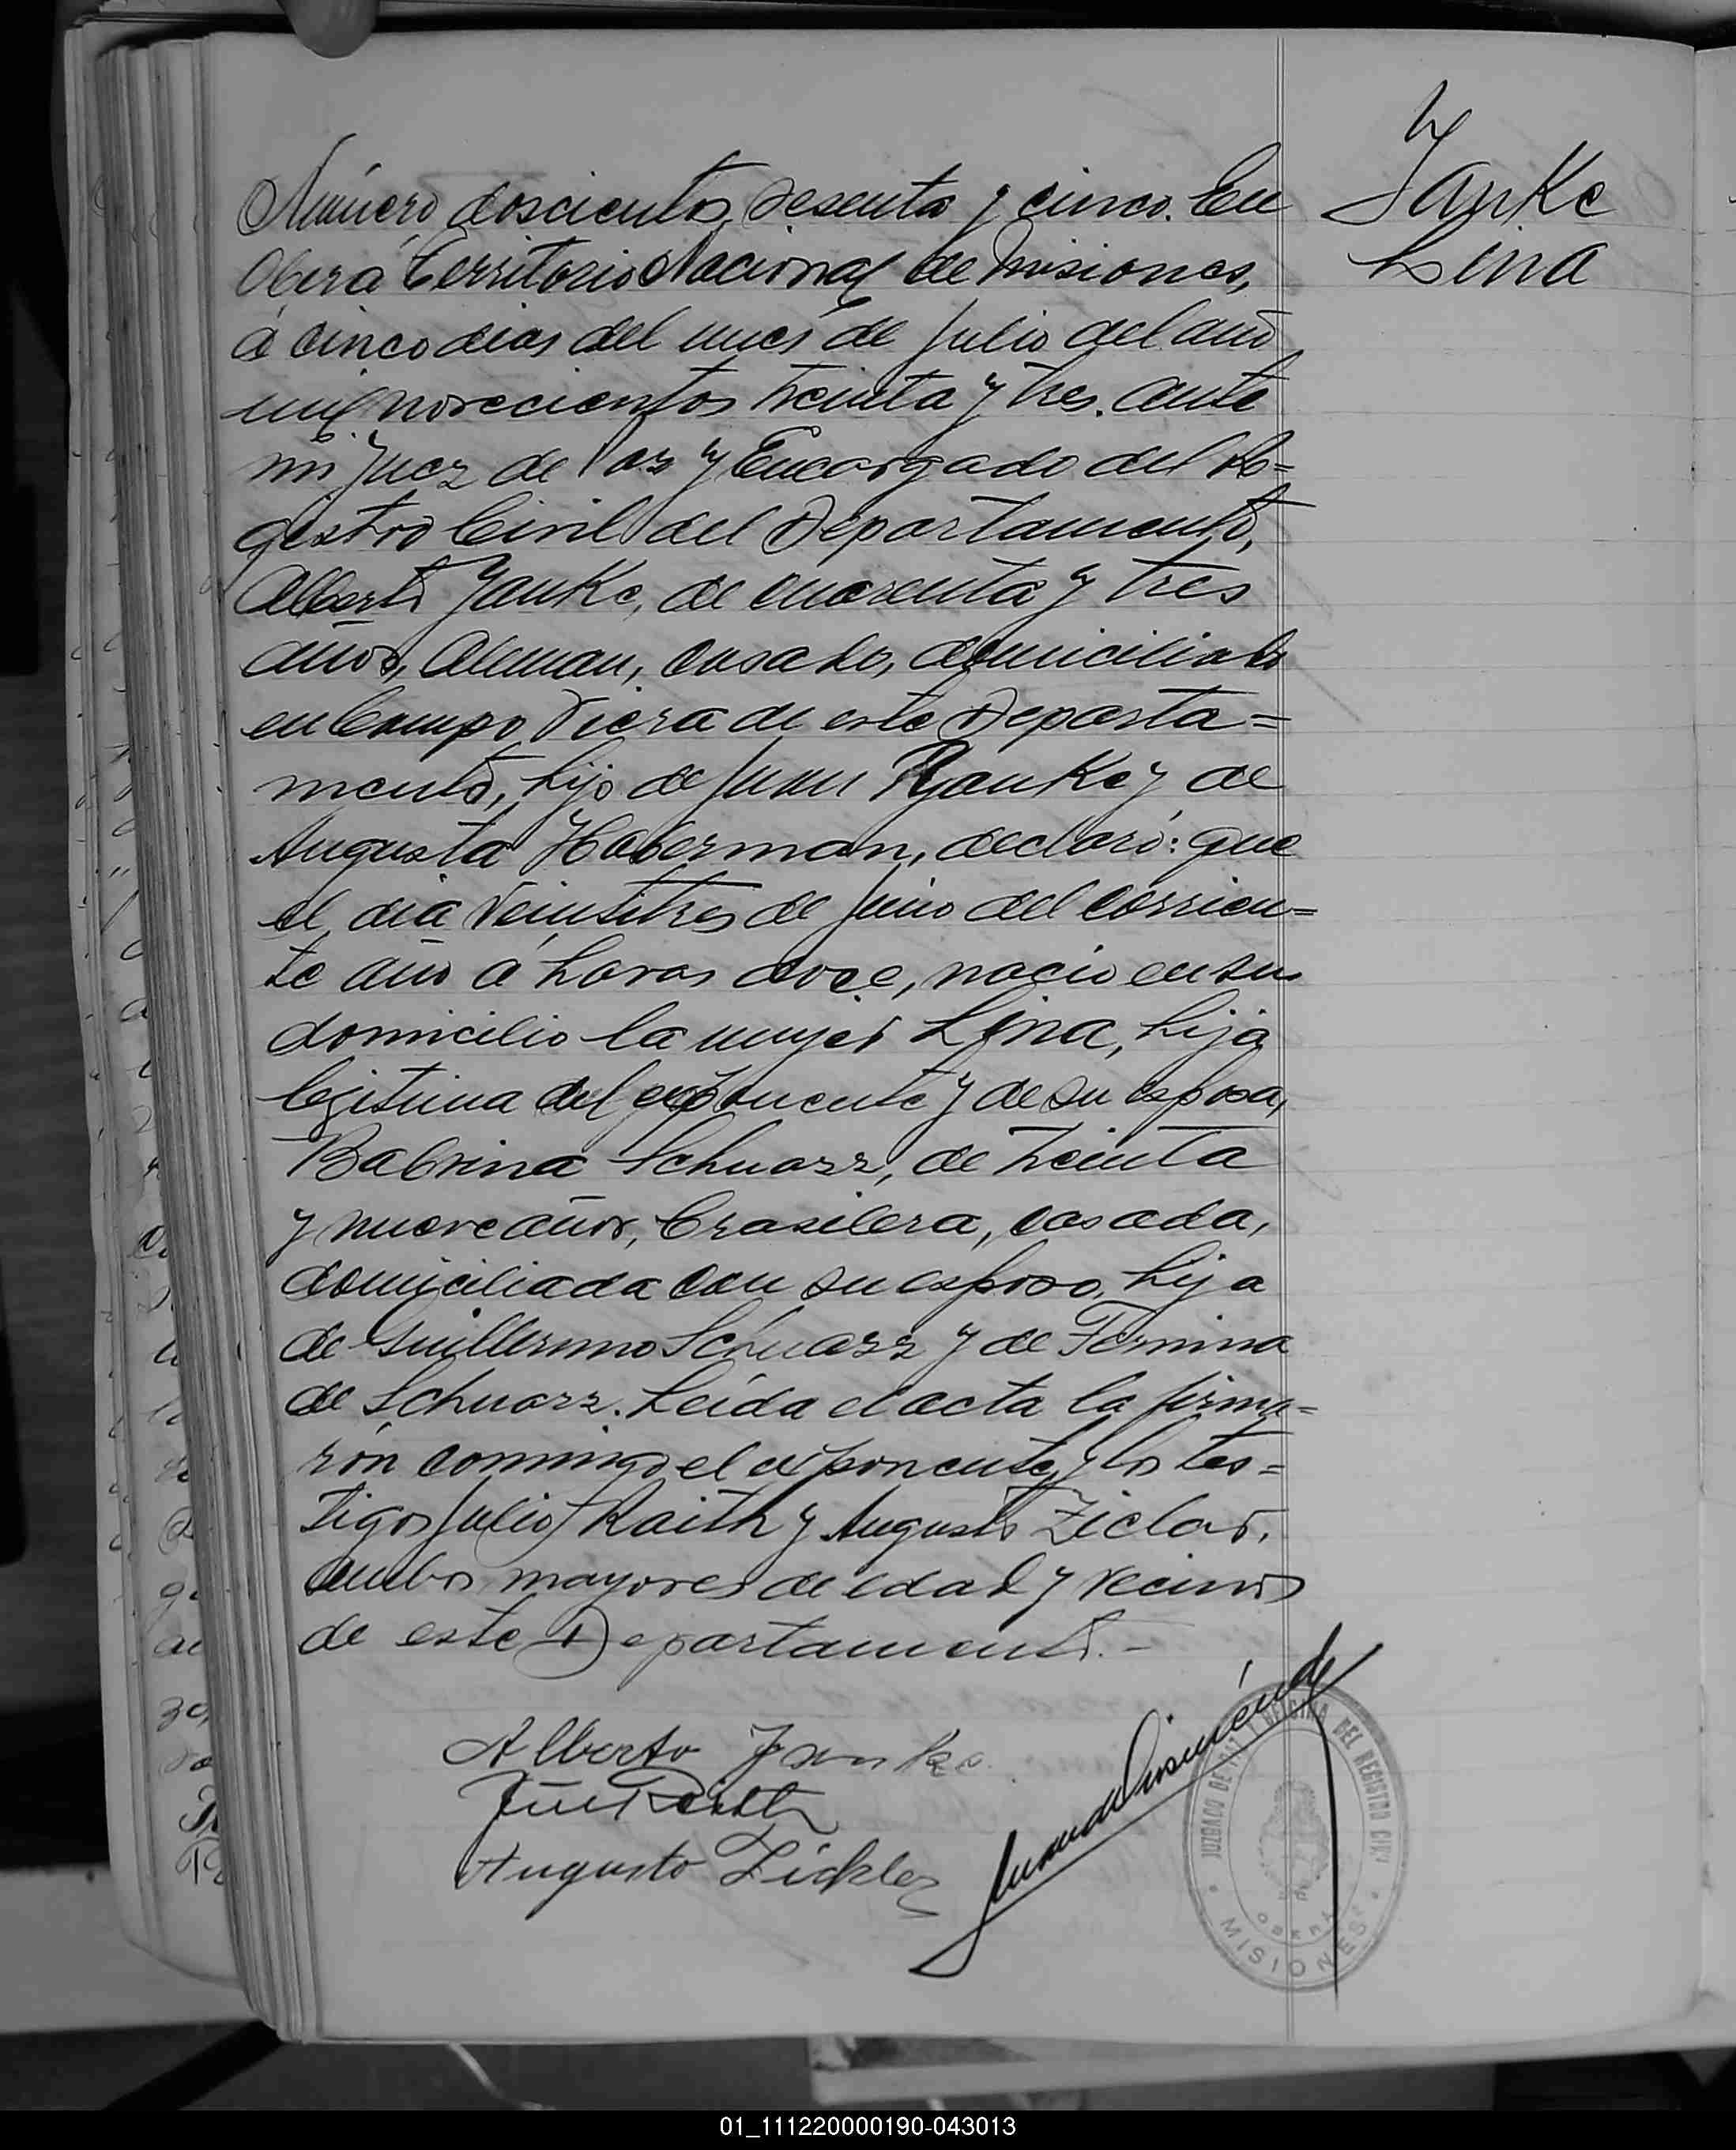 Yanke
Lina
Número doscientos sesenta y cinco. En
Oberá Territorio Nacional de Misiones,
á cinco dias del mes de Julio del año
mil novecientos treinta y tres. ante
mi Juez de Paz y Encargado del Re=
gistro Civil del Departamento,
Alberto Yanke, de cuarenta y tres
años, Aleman, casado, domiciliado
en Campo Viera de este Departa=
mento, hijo de Juan Yanke y de
Augusta Haberman, declaró: que
el dia veintitres de Junio del corrien=
te año á horas doce, nació en su
domicilio la mujer Lina, hija
legitima del exponente y de su esposa,
Balvina Schuarz, de treinta
y nueve años, brasilera, casada,
domiciliada con su esposo, hija
de Guillermo Schuarz y de Fermina
de Schuarz. Leida el acta la firma=
rón conmigo el exponente y los tes=
tigos Julio Raith y Augusto Ziclar,
ambos mayores de edad y vecinos
de este Departamento.-
Alberto Janke
Raith
Augusto Zickler
JUZGADO DE PAZ Y OFICINA DEL REGISTRO CIVIL
OBERA
MISIONES
01_111220000190-043013